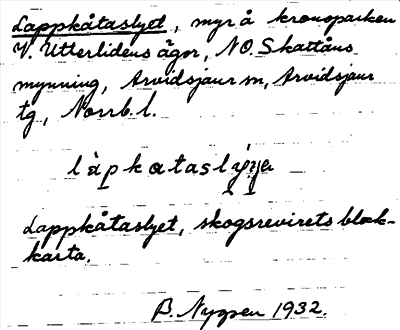 Lappkåtaslyet, myr å kronoparken
V. Utterlidens ägor, NO. Skattåns
mynning, Arvidsjaur sn, Arvidsjaur
tg., Norrb. l.
Lappkåtaslyet, skogsrevirets block-
karta.
B. Nygren 1932.